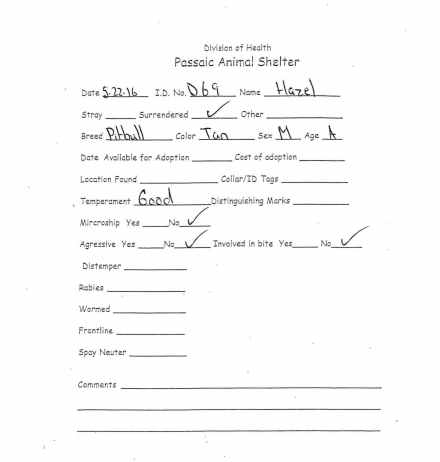 Division of Health
Passaic Animal Shelter
Date 5-22-16 I.D. No. D69 Name Hazel
Stray Surrendered ✓ Other
Breed Pitbull Color Tan Sex M Age A
Date Available for Adoption Cost of adoption
Location Found Collar/ID Tags
Temperament Good Distinguishing Marks
Mircroship Yes No ✓
Agressive Yes No ✓ Involved in bite Yes No ✓
Distemper
Rabies
Wormed
Frontline
Spay Neuter
Comments